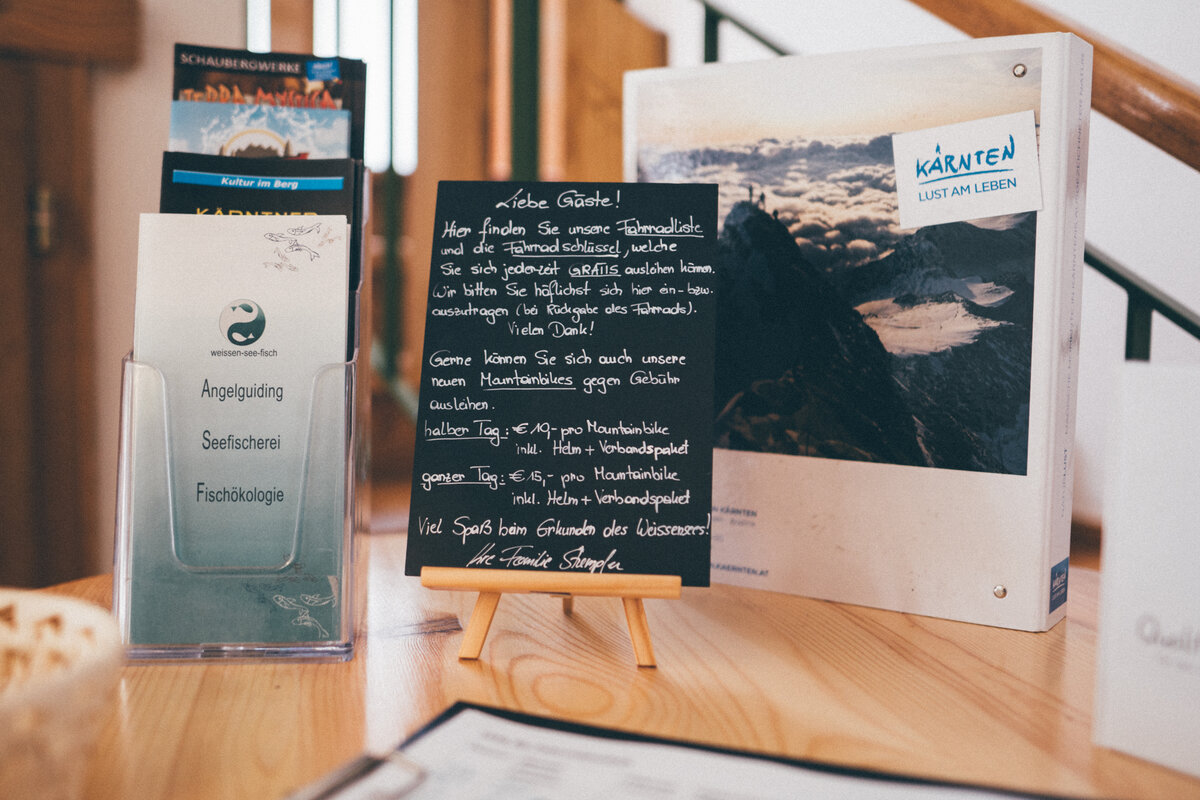 SCHAUBERGWERKE
TERRA MYSTICA
Kultur im Berg
KÄRNTNER
weissen-see-fisch
Angelguiding
Seefischerei
Fischökologie
Liebe Gäste!
Hier finden Sie unsere Fahrradliste
und die Fahrradschlüssel, welche
Sie sich jederzeit GRATIS ausleihen können.
Wir bitten Sie höflichst sich hier ein- bzw.
auszutragen (bei Rückgabe des Fahrrads).
Vielen Dank!
Gerne können Sie sich auch unsere
neuen Mountainbikes gegen Gebühr
ausleihen.
halber Tag: € 10,- pro Mountainbike
inkl. Helm + Verbandspaket
ganzer Tag: € 15,- pro Mountainbike
inkl. Helm + Verbandspaket
Viel Spaß beim Erkunden des Weissensees!
Ihre Familie
KÄRNTEN
LUST AM LEBEN
KÄRNTEN
KAERNTEN.AT
KÄRNTEN